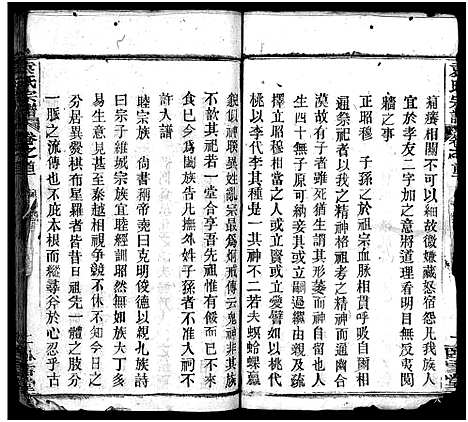 痾癢相關不可無故以細故微嫌藏怒宿怨凡我族人
宜於孝友二字加之意將道理一想自無反夷鬩
牆之事
正昭穆　子孫之於祖宗血脉相貫呼吸自爾相
通祭祀者以我之精神格祖考之精神而通幽合
漠故有子者雖死猶生謂其形萎而神存也若人
生四十無子原可納妾其或立嗣過繼由親及疎
擇立昭穆相當之人或大宗無嗣小宗可以桃代
桃以李代李其種是一其神不二若夫螟蛉蜾蠃
貌似神睽異姓亂宗最爲炯戒傳云鬼神非其族
不歆其祀若一堂合享吾先祖惟有吐之而去不
食已今爲闔族告凡撫外姓子孫者不准入祠不
許入譜
睦宗族　書稱帝堯曰克明俊德以親九族詩
曰宗子維城宗族宜睦經訓昭然無如族大丁多
易生意見甚至秦越相視爭競不休不知今日雖
分居異爨棋布星羅者皆昔日祖先一體之肢分
一脈之流傳也不庇本根而縱尋斧於心忍乎古
袁氏宗譜
卷之首
袁氏宗譜